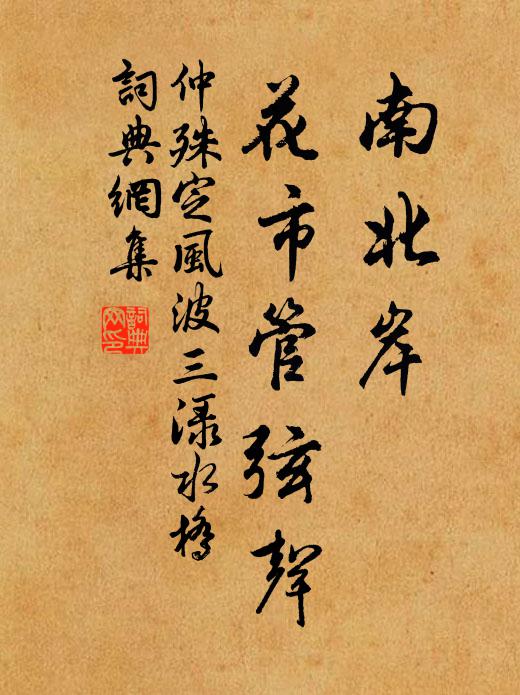 南北岸
花市管弦聲
仲殊定風波三渌水橋
詞典網集
詞典
网印